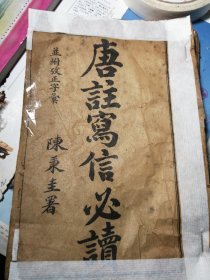 唐註寫信必讀
並附改正字彙
陳秉圭署